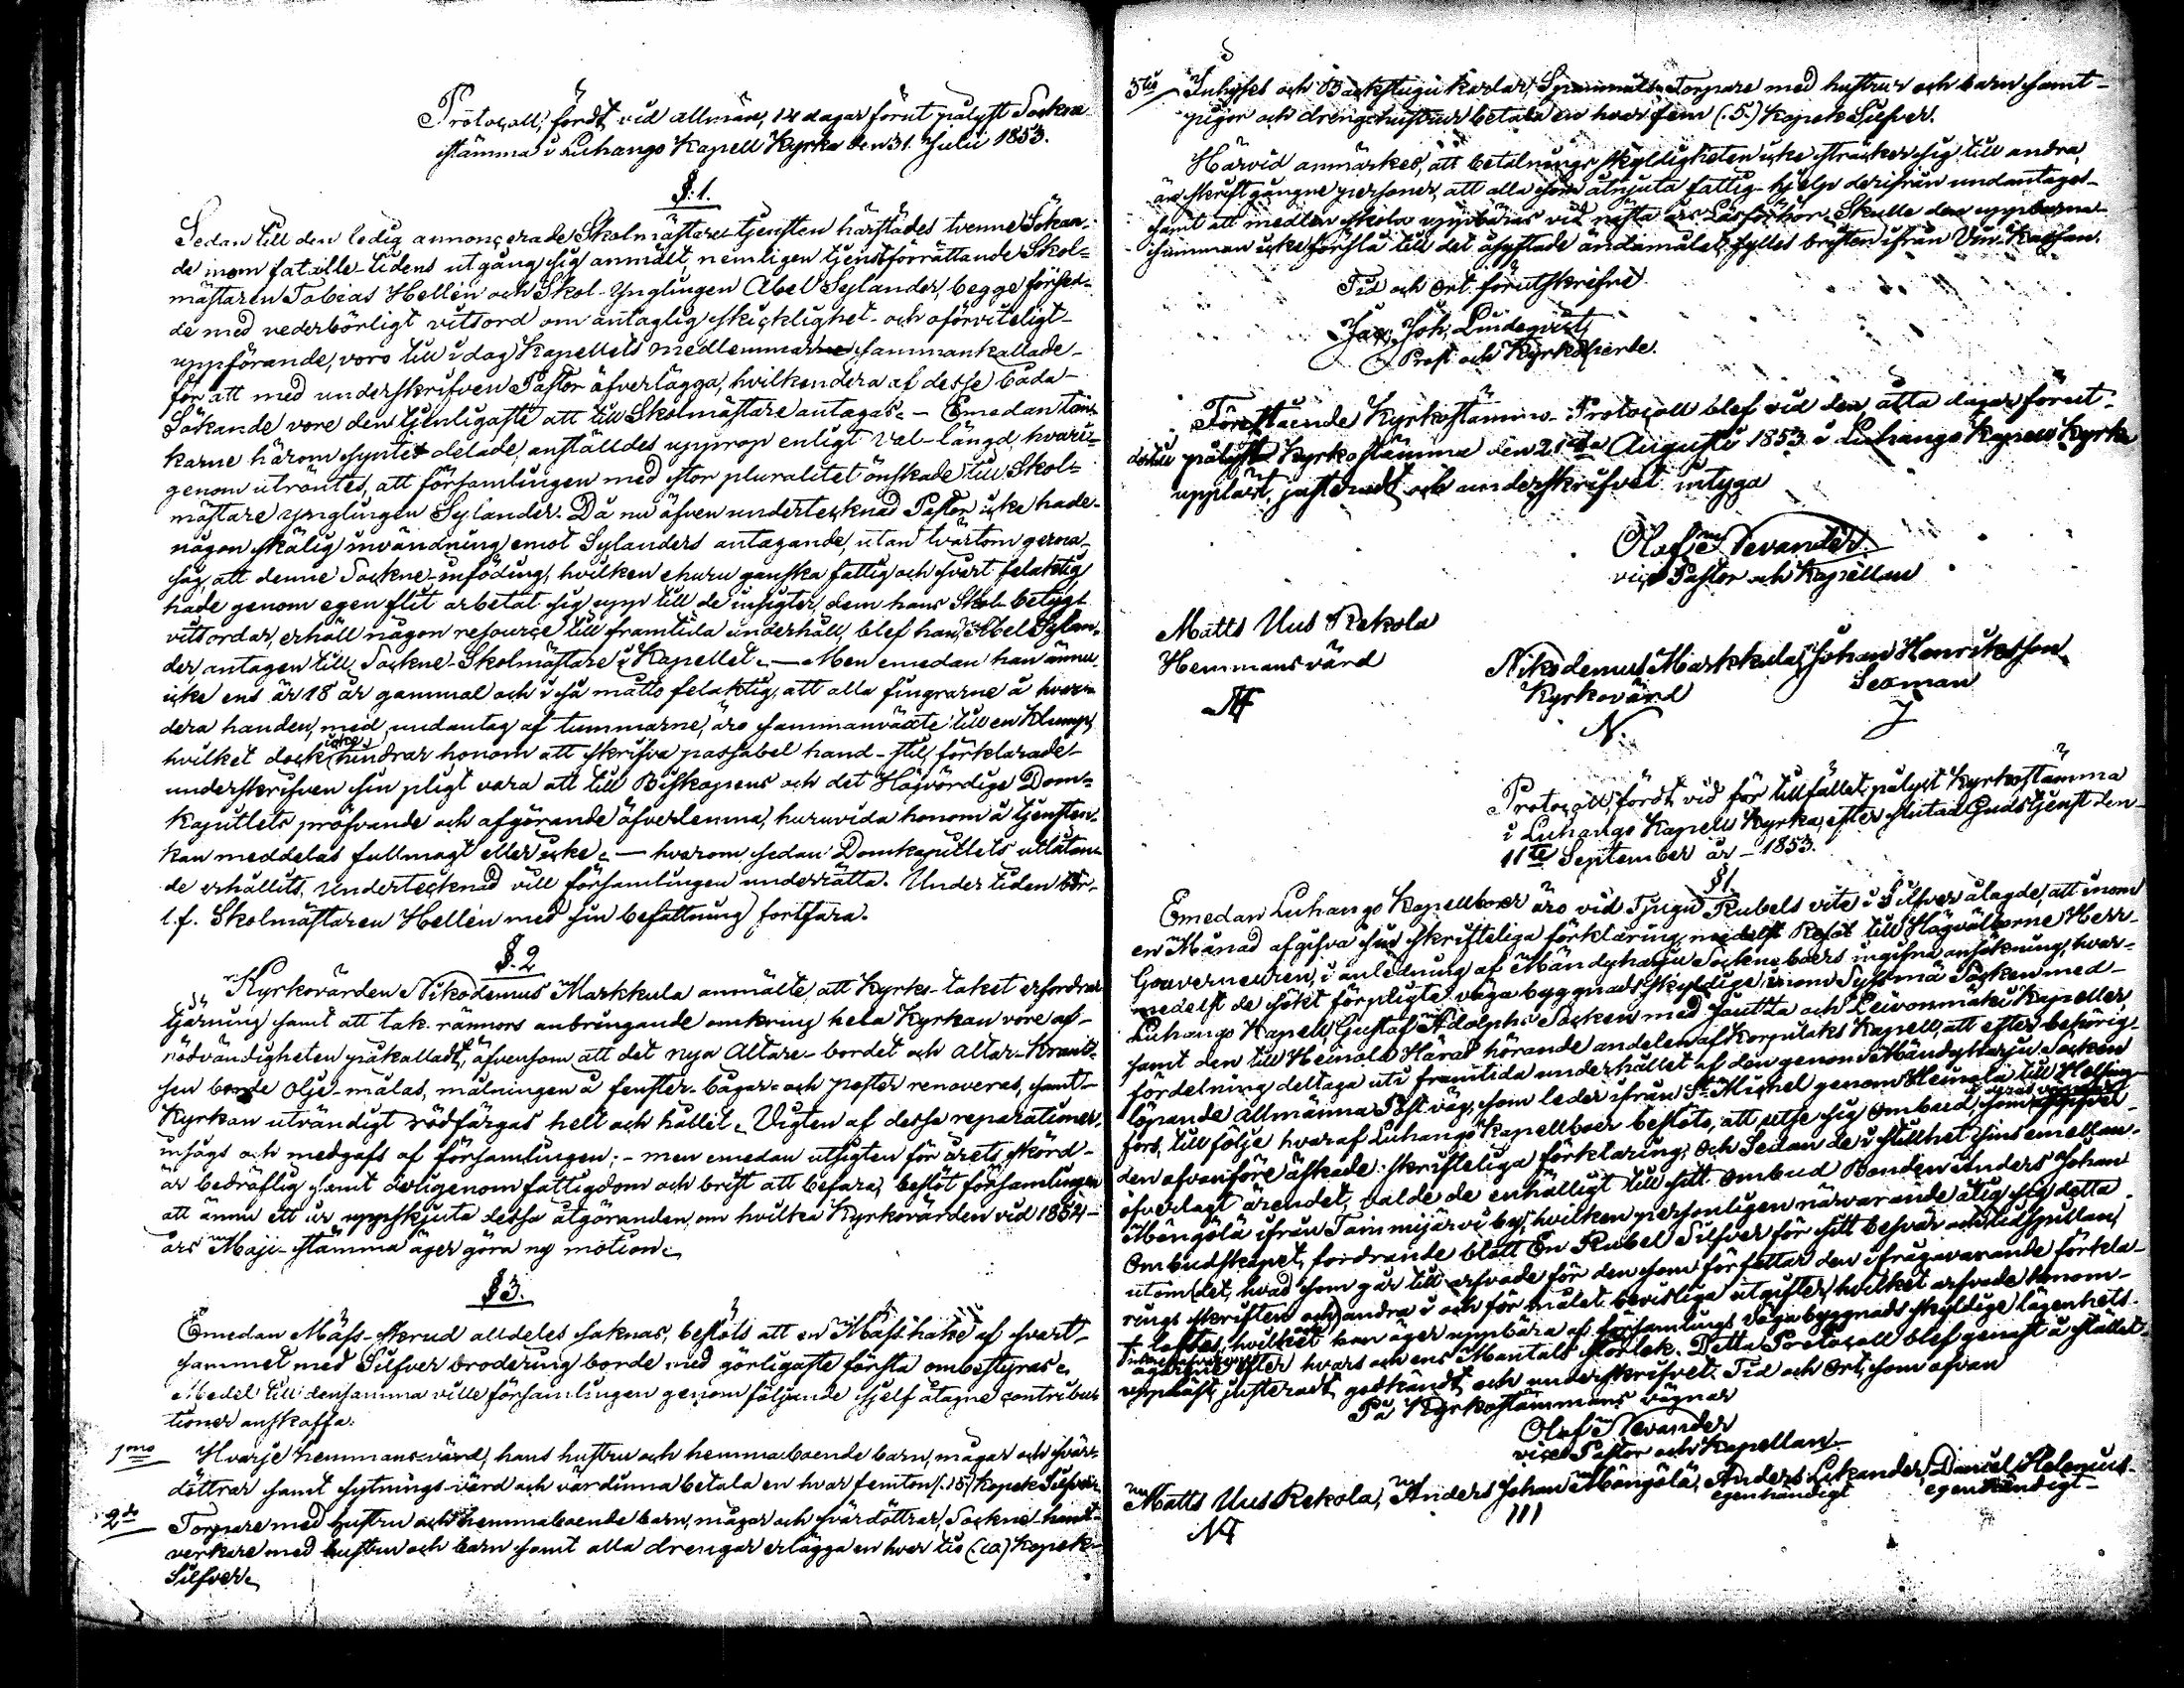 Protocoll, fördt vid allmän, 14 dagar förut pålyst Sockne
stämma i Luhango Kapell Kyrka den 31. Julii 1853.
§. 1.
Sedan till den ledig annoncerade Skolmästare-tjensten härstädes tvenne Sökan-
de inom fatallie-tidens utgång sig anmält, nemligen tjenstförrättande Skol-
mästaren Tobias Hellén och Skol-Ynglingen Abel Sylander, begge försed-
de med vederbörligt vitsord om antaglig skicklighet och oförviteligt
uppförande, voro till i dag Kapellets medlemmar sammankallade
för att med underskrifven Pastor öfverlägga, hvilkendera af desse båda
Sökande vore den tjenligaste att till Skolmästare antagas. - Emedan tän-
karne härom syntes delade, anställdes upprop enligt Val-längd, hvari-
genom utröntes, att församlingen med stor pluralitet önskade till Skol-
mästare ynglingen Sylander. Då nu äfven undertecknad Pastor icke hade
någon skälig invändning emot Sylanders antagande, utan tvärtom gerna
såg, att denne Sockne-inföding, hvilken ehuru ganska fattig och svårt felaktig
hade genom egen flit arbetat sig upp till de insigter, dem hans Skol-betyg
vitsordar, erhåll någon resource till framtida underhåll, blef han, Abel Sylan-
der, antagen till Sockne-Skolmästare i Kapellet. - Men emedan han ännu
icke ens är 18 år gammal och i så måtto felaktig, att alla fingrarne å hvar-
dera handen, med undantag af tummarne, äro sammanväxte till en klump,
hvilket dock icke hindrar honom att skrifva passabel hand-stil, förklarade
underskrifven sin pligt vara att till Biskopens och det Högvördige Dom-
Kapitlets pröfvande och afgörande öfverlemna, huruvida honom å tjensten
kan meddelas fullmagt eller icke. - hvarom sedan Domkapitlets utlåtan-
de erhållits, Undertecknad vill församlingen underrätta. Under tiden bör
t.f. Skolmästaren Hellén med sin befattning fortfara.
§. 2
Kyrkovärden Nikodemus Markkula anmälte, att Kyrko-taket erfordrar
tjärning samt att tak-rännors anbringande omkring hela Kyrkan vore af
nödvändigheten påkalladt, äfvensom att det nya Altare-bordet och Altar-Krant-
sen borde olje-målas, målningen å fenster-bågar och poster renoveras, samt
Kyrkan utvändigt rödfärgas helt och hållet. Vigten af dessa reparationer
insågs och medgafs af församlingen; - men emedan utsigten för årets skörd
är bedröflig samt derigenom fattigdom och brist att befara, beslöt församlingen
att ännu ett år uppskjuta dessa åtgöranden, om hvilka Kyrkovärden vid 1854
års Maji-stämma äger göra ny motion.
§ 3.
Emedan Mäss-skrud alldeles saknas, beslöts att en Mäss hake af svart
sammet med Silfver brodering borde med görligaste första ombestyras.
Medel till densamma ville församlingen genom följande sjelf åtagne contribu-
tioner anskaffa:
1mo Hvarje hemmans-värd, hans hustru och hemmaboende barn, mågar och svär-
döttrar samt sytnings-värd och värdinna betala en hvar femton (15) Kopek Silfver.
2do Torpare med hustru och hemmaboende barn, mågar och svärdöttrar, Sockne-hand-
verkare med hustru och barn samt alla drengar erlägga en hvar tio (10) Kopek
Silfver.
3tio Inhyses och Backstugu karlar, Spannmåls-Torpare med hustrur och barn samt
pigor och drengehustrur betala en hvar fem (5.) Kopek Silfver.
Härvid anmärkes, att betalnings skyldigheten icke sträcker sig till andra,
än skriftgångne personer, att alla som åtnjuta fattig-hjelp derifrån undantages
samt att medlen skola uppbäras vid nästa års Läsförhör. Skulle den uppburna
summan icke förslå till det åsyftade ändamålet, fylles bristen ifrån Vin-Kassan.
Tid och Ort förutskrifne
Jac. Joh. Lindeqvist
Prost och Kyrkoherde.
Förestående Kyrkostämmo-Protocoll blef vid den, åtta dagar förut
pålyste Kyrkostämma den 21sta Augusti 1853 i Luhango Kapell Kyrka
uppläst, justeradt och underskrifvet, intyga
Olof Nevander
vice Pastor och Kapellan
Matts Uus Rekola
Hemmansvärd
Nikodemus Markkula, Johan Henriksson
Kyrkovärd Sexman
N. J
Protocoll, fördt vid för tillfället pålyst Kyrkostämma
i Luhango Kapell Kyrka, efter slutad Gudstjenst den
11te September år 1853.
§ 1.
Emedan Luhango Kapellboer äro vid Tjugu Rubels vite i Silfver ålagde, att inom
en Månad afgifva sin skrifteliga förklaring, medelst till Högvälborne Herr
Gouverneuren, i anledning af Mändyharju Sockneboers ingifna ansökning, hvar-
medelst de sökt förpligta väga byggnadsskyldige inom Sysmä Socken med
Luhango Kapell, Gustaf Adolphs Socken med Joutsa och Leivonmäki Kapeller
samt den till Heinola Härad hörande andelen af Korpilaks Kapell, att efter behörig
fördelning deltaga uti framtida underhållet af den genom Mändyharju Socken
löpande allmänna Post väg, som leder ifrån St Michel genom Heinola till Helsing-
fors, till följe hvaraf Luhango Kapellboer beslöto, att utse sig Ombud, som
den ofvanföre äskade skrifteliga förklaring; Och Sedan de i stillhet sins emellan
öfverlagt ärendet, valde de enhälligt till sitt Ombud Bonden Anders Johan
Möngölä ifrån Tammijärvi by, hvilken personligen närvarande åtog sig detta
Ombudskapet, fordrande blott En Rubel Silfver för sitt besvär och tidspillan,
utom det, hvad som går till arfvode för den som författar den ifrågavarande förkla-
rings skriften och andra i och för målet bevisliga utgifter, hvilket arfvode honom
lofvtes, hvilket han äger uppbära af församlings väga byggnads skyldige lägenhets
ägare efter hvars och ens Mantals storlek. Detta Protocoll blef genast å stället
uppläst, justeradt, godkändt och underskrifvet. Tid och Ort, som ofvan
På Kyrkostämmans vägnar
Olof Nevander
vice Pastor och Kapellan
Matts Uus Rekola, Anders Johan Möngölä, Anders Lekander, Daniel Helenius
egenhändigt egenhändigt